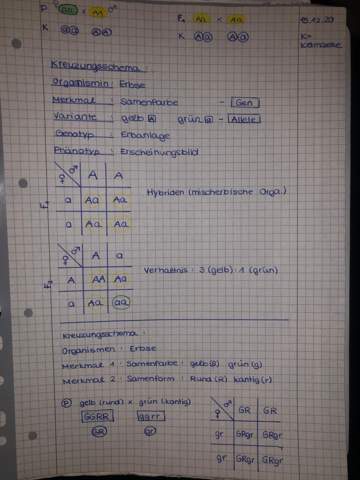 P ♀ aa × AA ♂ F₁ Aa × Aa 15.12.20
K a a A A K A a A a K=
Keimzelle
Kreuzungsschema:
Organismen: Erbse
Merkmal : Samenfarbe - Gen
Variante : gelb A grün a - Allele
Genotyp : Erbanlage
Phänotyp : Erscheinungsbild
♀ ♂ A A
F₁ a Aa Aa Hybriden (mischerbische Orga.)
a Aa Aa
♀ ♂ A a
F₂ A AA Aa Verhältnis : 3 (gelb) : 1 (grün)
a Aa aa
Kreuzungsschema :
Organismen : Erbse
Merkmal 1 : Samenfarbe : gelb (G) grün (g)
Merkmal 2 : Samenform : Rund (R) kantig (r)
P gelb (rund) × grün (kantig)
GGRR ggrr
GR gr
♀ ♂ GR GR
gr GRgr GRgr
gr GRgr GRgr